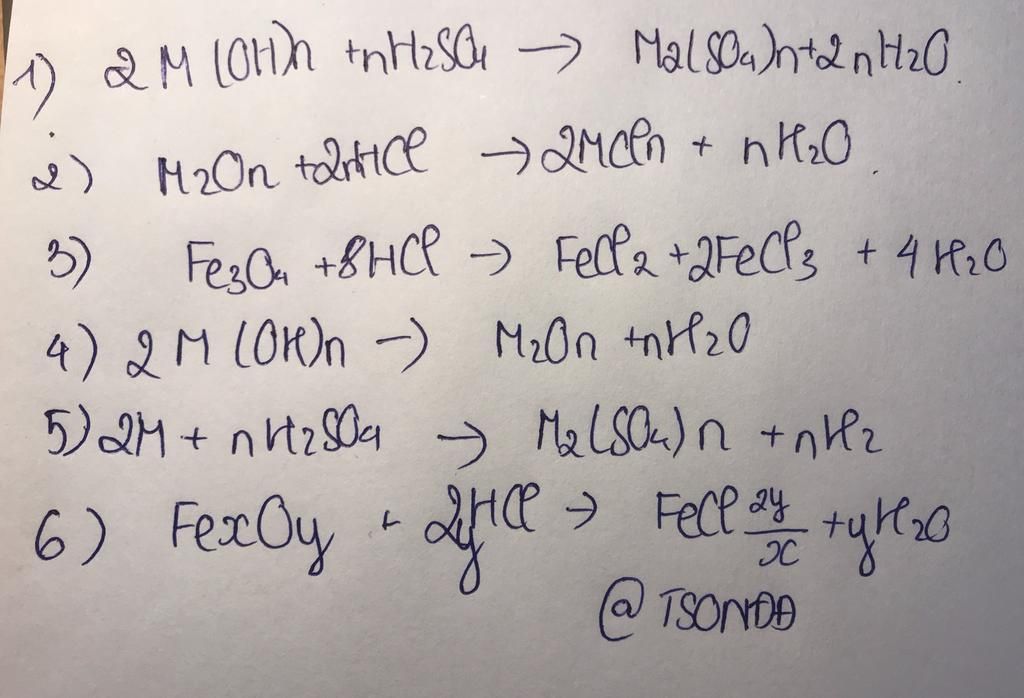 1) 2M(OH)n + nH2SO4 → M2(SO4)n + 2nH2O.
2) M2On + 2nHCl → 2MCln + nH2O.
3) Fe3O4 + 8HCl → FeCl2 + 2FeCl3 + 4H2O
4) 2M(OH)n → M2On + nH2O
5) 2M + nH2SO4 → M2(SO4)n + nH2
6) FexOy + 2yHCl → FeCl 2y/x + yH2O